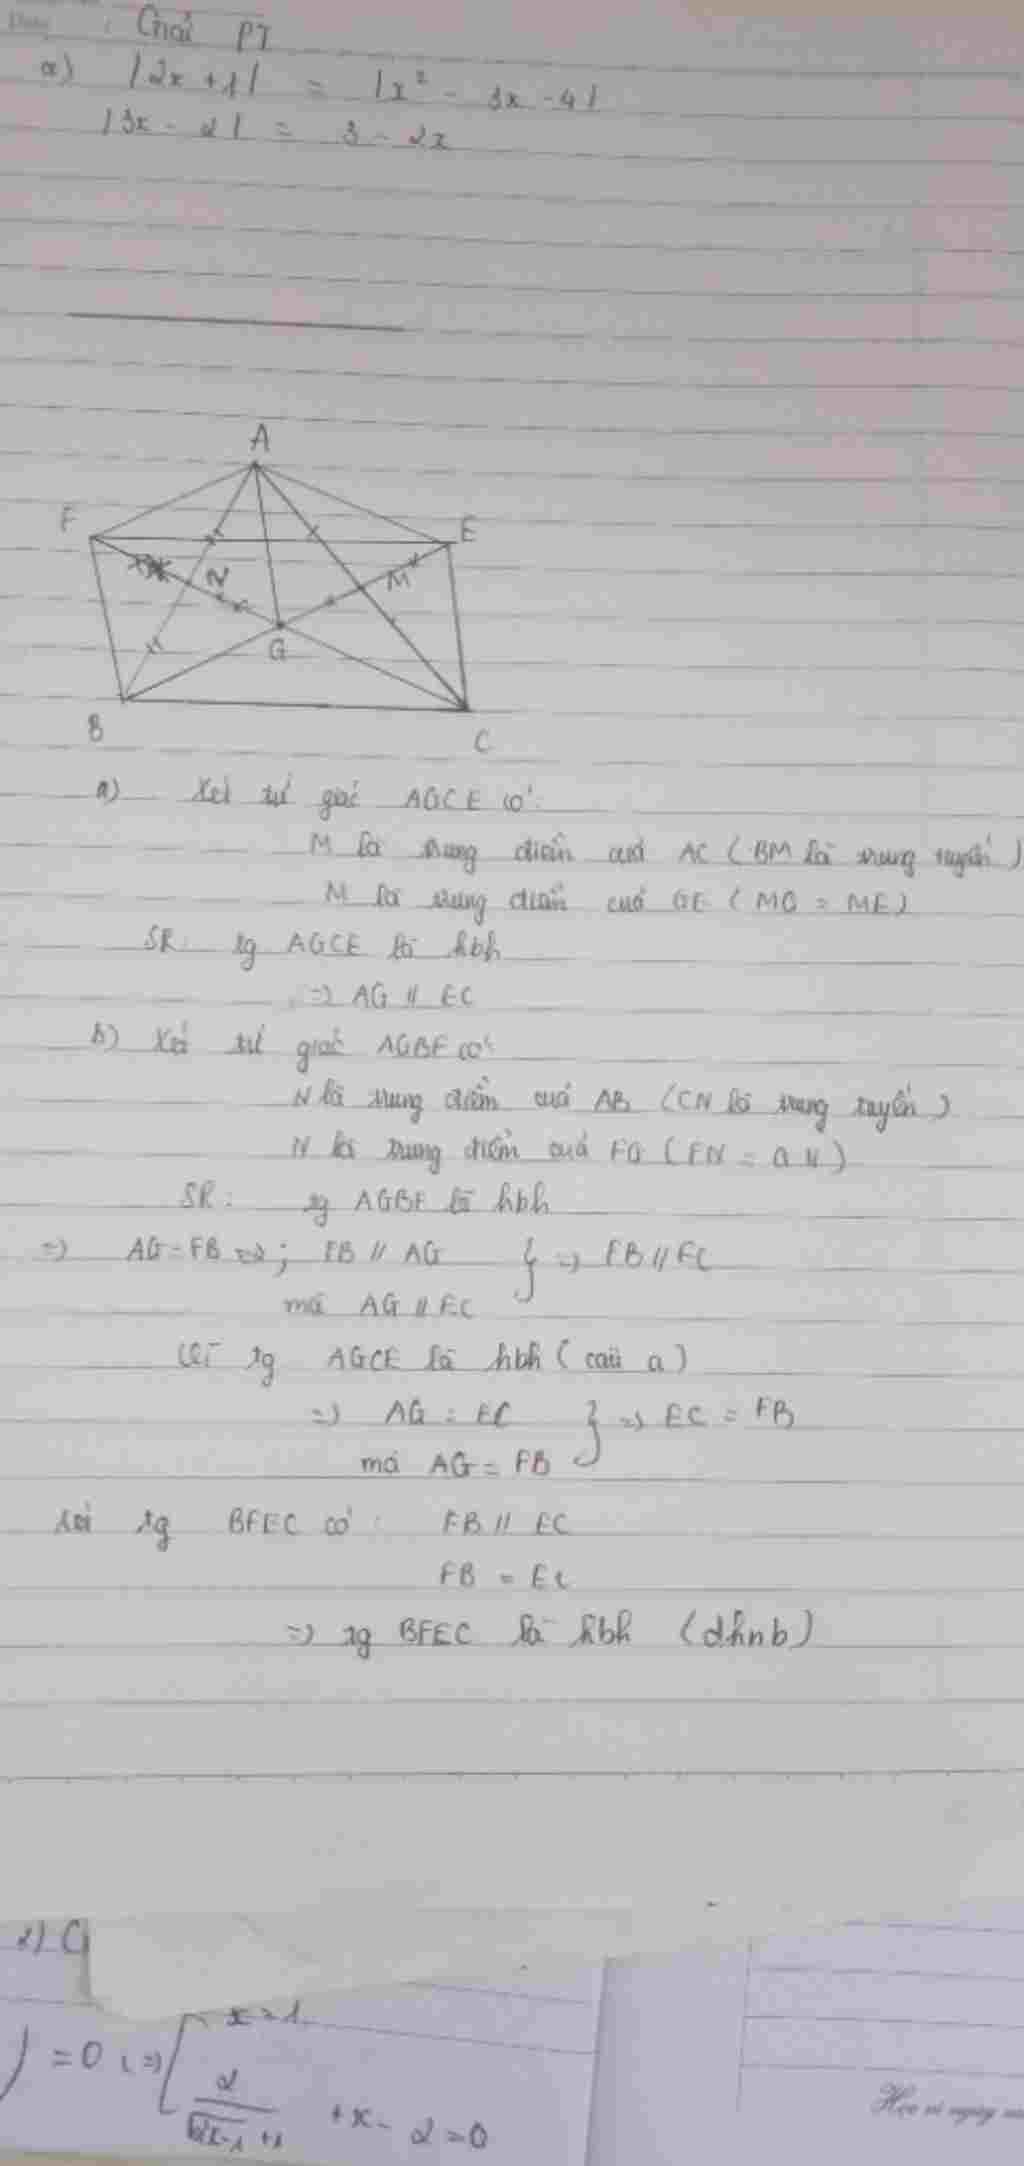 Giải PT
a) |2x + 1| = |x² - 3x - 4|
|3x - 2| = 3 - 2x
A
F
E
N
M
G
B
C
a) Xét tứ giác AGCE có:
M là trung điểm của AC (BM là trung tuyến)
M là trung điểm của GE (MG = ME)
SR: tg AGCE là hbh
=> AG // EC
b) Xét tứ giác AGBF có:
N là trung điểm của AB (CN là trung tuyến)
N là trung điểm của FG (FN = GN)
SR: tg AGBF là hbh
=> AG = FB ; FB // AG } => FB // EC
mà AG // EC
Vì tg AGCE là hbh (câu a)
=> AG = EC } => EC = FB
mà AG = FB
Xét tg BFEC có: FB // EC
FB = EC
=> tg BFEC là hbh (dhnb)
) = 0 <=> [ x = 1
2/(√2x-1 + 1) + x - 2 = 0
Học vì ngày